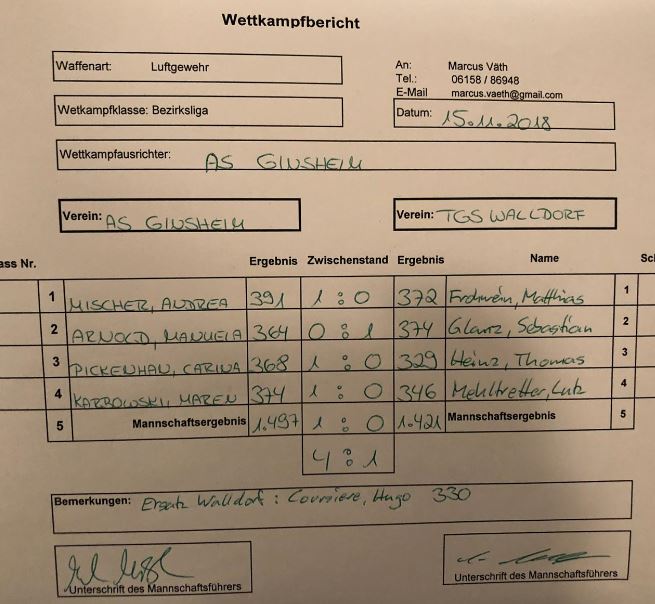 Wettkampfbericht
Waffenart: Luftgewehr
An: Marcus Väth
Tel.: 06158 / 86948
E-Mail marcus.vaeth@gmail.com
Wetkampfklasse: Bezirksliga
Datum: 15.11.2018
Wettkampfausrichter: AS GINSHEIM
Verein: AS GINSHEIM
Verein: TGS WALLDORF
ass Nr. Ergebnis Zwischenstand Ergebnis Name Sc
1 MISCHER, ANDREA 391 1 : 0 372 Frohwein, Matthias 1
2 ARNOLD, MANUELA 364 0 : 1 374 Glanz, Sebastian 2
3 PICKENHAN, CARINA 368 1 : 0 329 Heinz, Thomas 3
4 KARBOWSKI, MAREN 374 1 : 0 346 Mehltretter, Lutz 4
5 Mannschaftsergebnis 1.497 1 : 0 1.421 Mannschaftsergebnis 5
4 : 1
Bemerkungen: Ersatz Walldorf : Hugo 330
Unterschrift des Mannschaftsführers
Unterschrift des Mannschaftsführers